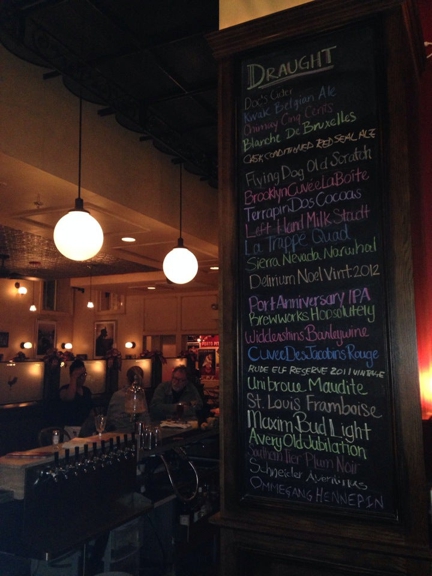 DRAUGHT
Doc's Cider
Kwak Belgian Ale
Chimay Cinq Cents
Blanche De Bruxelles
CASK CONDITIONED RED SEAL ALE
Flying Dog Old Scratch
Brooklyn Cuvée La Boîte
Terrapin Dos Cocoas
Left Hand Milk Stadt
La Trappe Quad
Sierra Nevada Narwhal
Delirium Noel Vint 2012
Port Anniversary IPA
Brewworks Hopsolutely
Widdershins Barleywine
Cuvee Des Jacobins Rouge
RUDE ELF RESERVE 2011 VINTAGE
Unibroue Maudite
St. Louis Framboise
Maxim Bud Light
Avery Old Jubilation
Southern Tier Plum Noir
Schneider Aventinus
OMMEGANG HENNEPIN